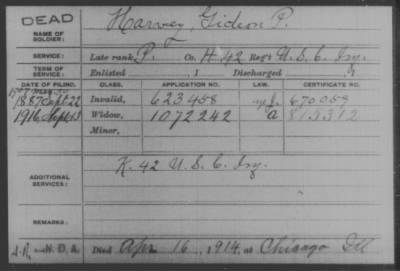 DEAD
NAME OF SOLDIER: Harvey, Gideon P.
SERVICE: Late rank P. Co. H 42 Reg't U.S.C. Inf.
TERM OF SERVICE: Enlisted , 1 Discharged
DATE OF FILING. CLASS. APPLICATION NO. LAW. CERTIFICATE NO.
1887 Sept 22 Invalid, 623.458 670059
1916 Sept 13 Widow, 1072242 a 813312
Minor,
ADDITIONAL SERVICES: K. 42 U.S.C. Inf.
REMARKS:
and N. D. A. Died Apr 16, 1914, at Chicago Ill